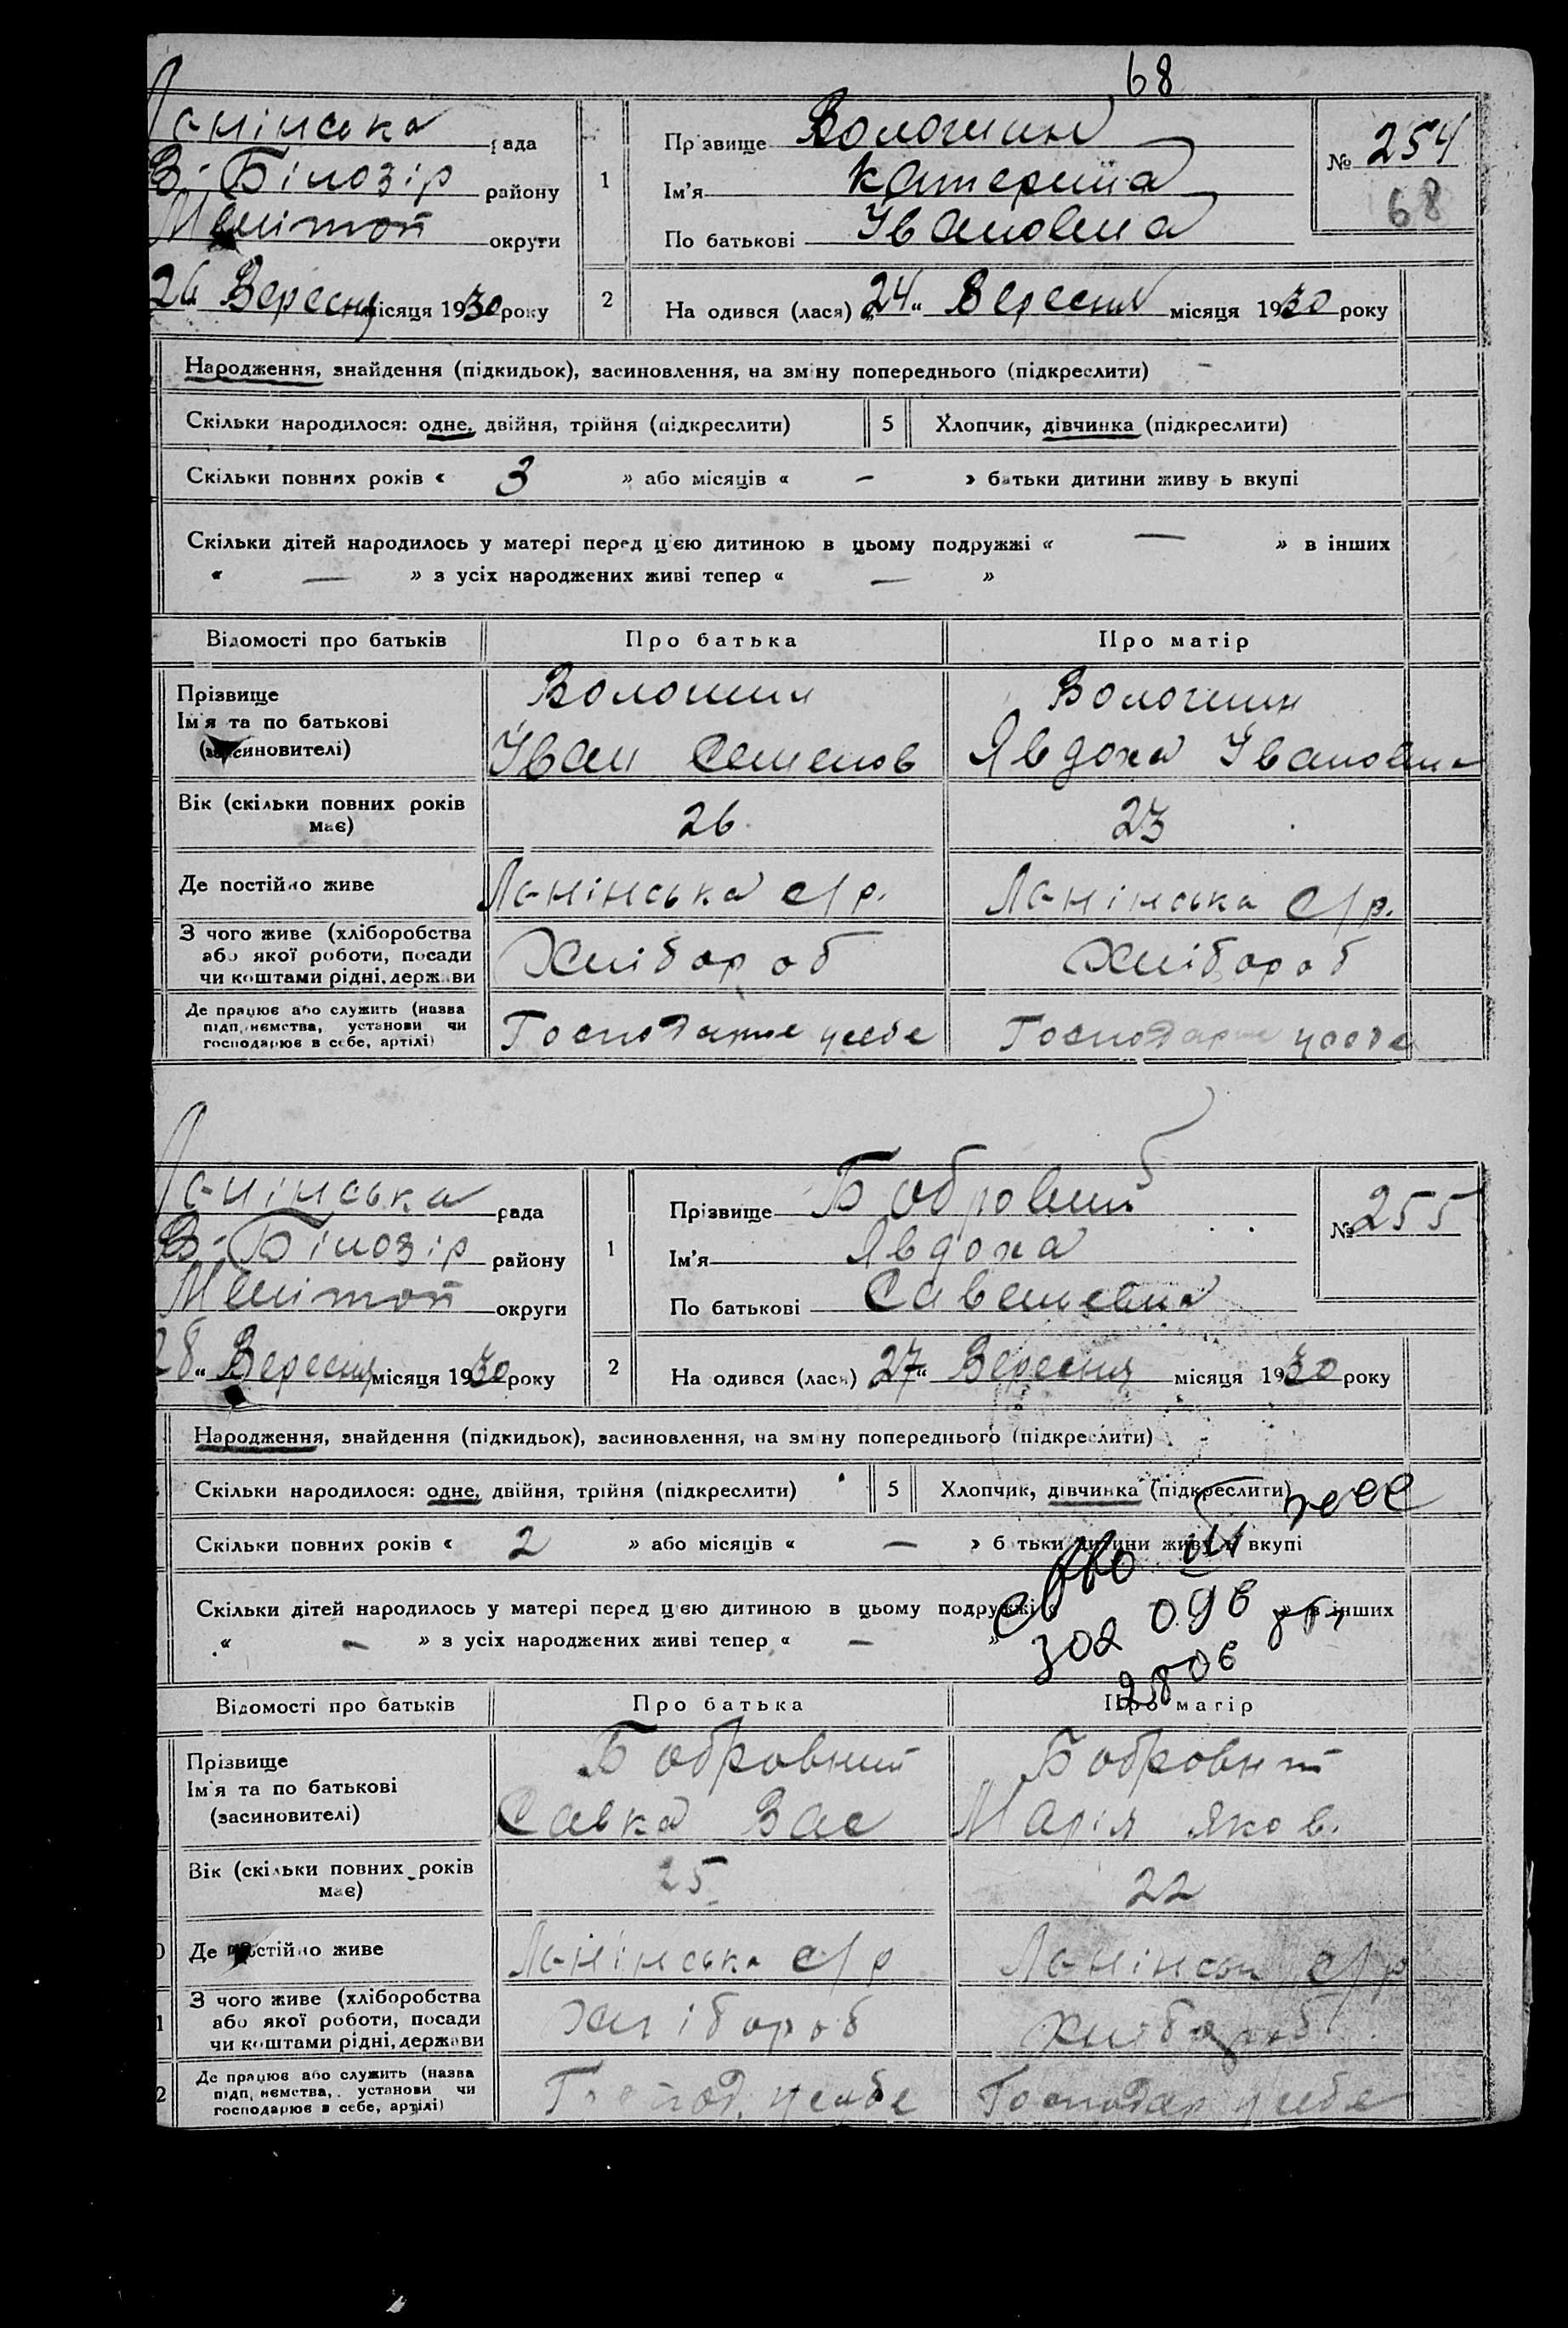 68
Ланінська рада
В-Білозір району
Мелітоп округи
26 Вересня місяця 1930 року
1
Прізвище Волошин
Ім'я Катерина
По батькові Івановна
№ 254
68
2
На одився (лася) „24“ Вересня місяця 1930 року
Народження, знайдення (підкидьок), засиновлення, на зміну попереднього (підкреслити) -
Скільки народилося: одне, двійня, трійня (підкреслити) 5 Хлопчик, дівчинка (підкреслити)
Скільки повних років « 3 » або місяців « — » батьки дитини живу ь вкупі
Скільки дітей народилось у матері перед цією дитиною в цьому подружжі « — » в інших
« — » з усіх народжених живі тепер « — »
Відомості про батьків Про батька Про матір
Прізвище Волошин Волошин
Ім'я та по батькові
(засиновителі) Іван Семенов Явдоха Івановна
Вік (скільки повних років
має) 26 23
Де постійно живе Ланінська с/р. Ланінська с/р.
З чого живе (хліборобства
або якої роботи, посади Хлібороб Хлібороб
чи коштами рідні, держави
Де працює або служить (назва
підприємства, установи чи Господарює усебе Господарює усебе
господарює в себе, артілі)
Ланінська рада
В-Білозір району
Мелітоп округи
28“ Вересня місяця 1930 року
1
Прізвище
Ім'я Явдоха
По батькові
№ 255
2
На одився (лася) 27“ Вересня місяця 1930 року
Народження, знайдення (підкидьок), засиновлення, на зміну попереднього (підкреслити) -
Скільки народилося: одне, двійня, трійня (підкреслити) 5 Хлопчик, дівчинка (підкреслити)
Скільки повних років « 2 » або місяців « — » б тьки дитини живу ь вкупі
Скільки дітей народилось у матері перед цією дитиною в цьому подружжі « » в інших
« — » з усіх народжених живі тепер « — »
Відомості про батьків Про батька Про матір
Прізвище
Ім'я та по батькові
(засиновителі) Савка Вас Марія Яков.
Вік (скільки повних років
має) 25 22
Де постійно живе Ланінська с/р Ланінськ с/р
З чого живе (хліборобства
або якої роботи, посади хлібороб хлібороб
чи коштами рідні, держави
Де працює або служить (назва
підприємства, установи чи Господ. усебе Господар усебе
господарює в себе, артілі)